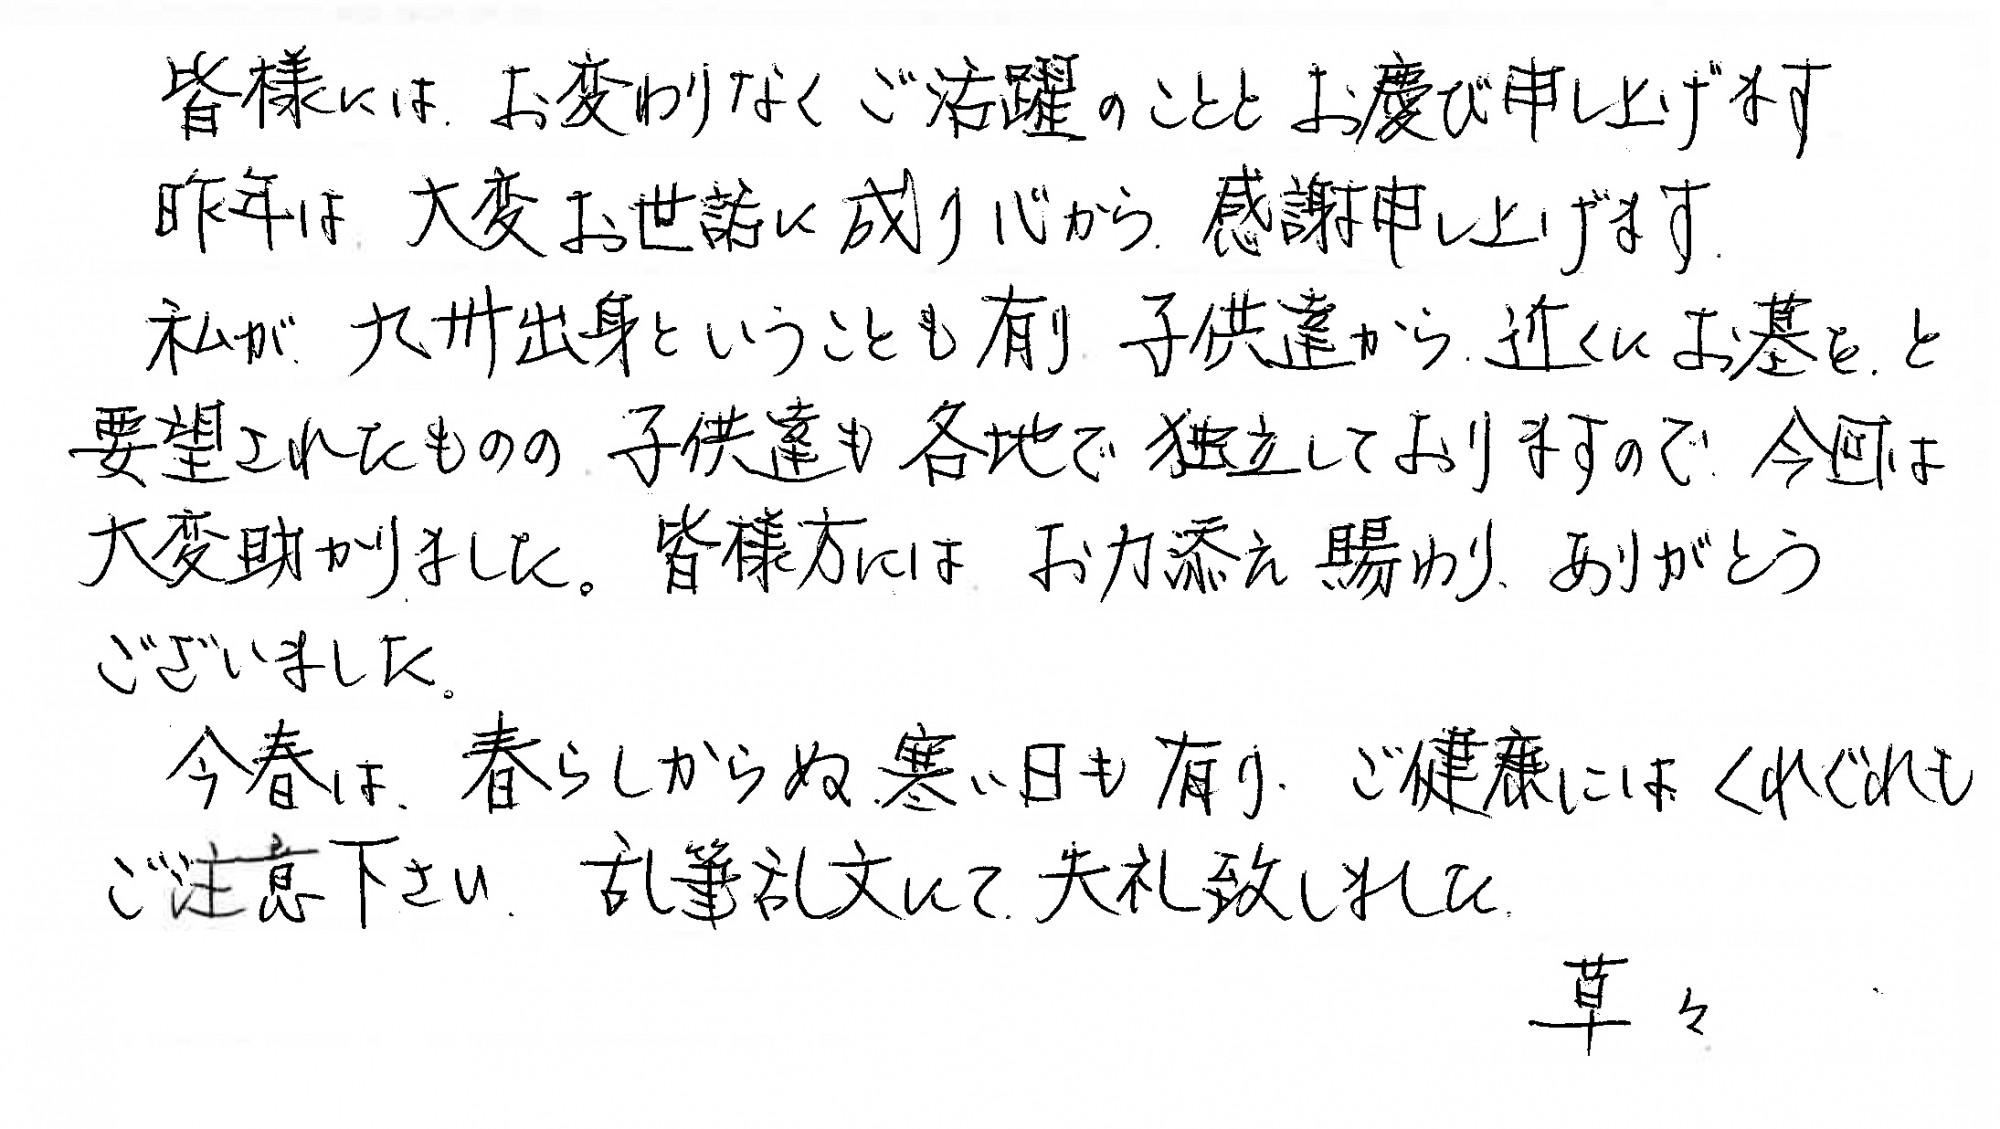 皆様には、お変わりなくご活躍のことと お慶び申し上げます
昨年は、大変お世話に成り心から、感謝申し上げます。
私が、九州出身ということも有り、子供達から、近くにお墓を、と
要望されたものの、子供達も各地で独立しておりますので、今回は
大変助かりました。皆様方には、お力添え賜わり、ありがとう
ございました。
今春は、春らしからぬ、寒い日も有り、ご健康には、くれぐれも
ご注意下さい、乱筆乱文にて、失礼致しました、
草々